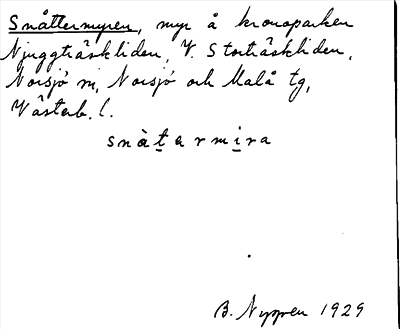 Snåttermyren, myr å kronoparken
Njuggträskliden, V. Storträskliden,
Norsjö sn, Norsjö och Malå tg,
Västerb. l.
snàt̲ermi̲ra
B. Nygren 1929